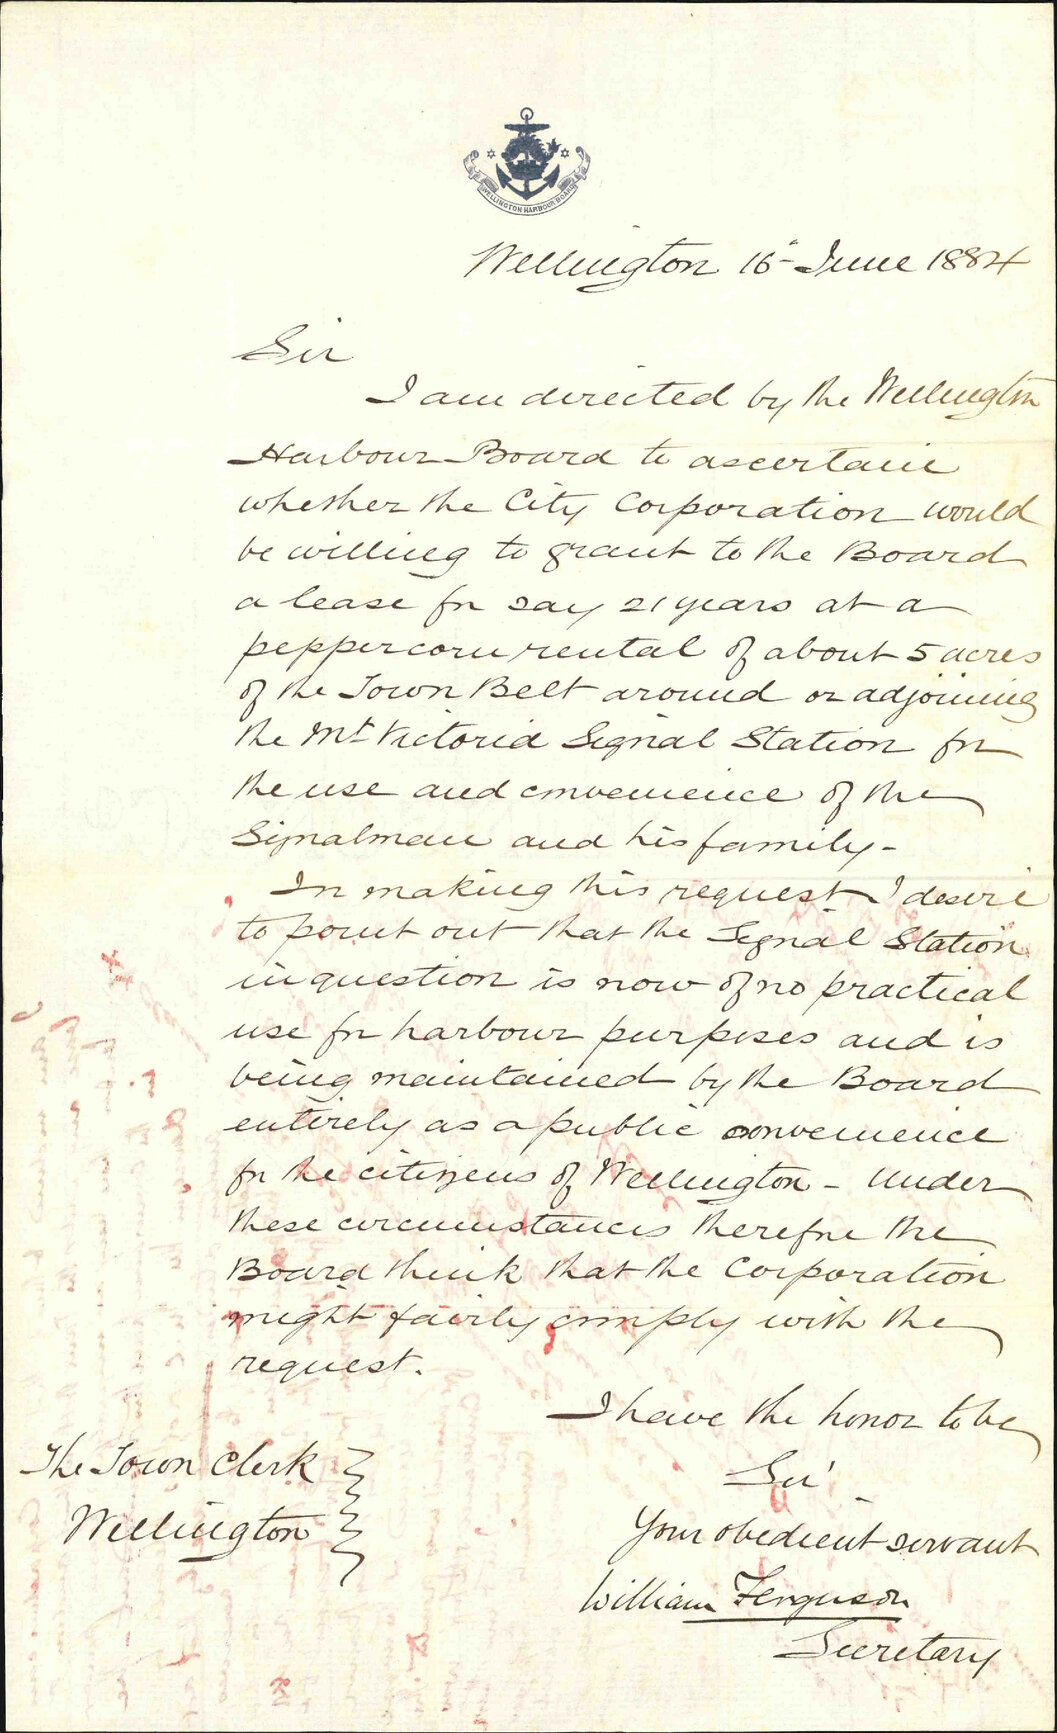 WELLINGTON HARBOUR BOARD
Wellington 16 June 1884
Sir
I am directed by the Wellington
Harbour Board to ascertain
whether the City Corporation would
be willing to grant to the Board
a lease for say 21 years at a
peppercorn rental of about 5 acres
of the Town Belt around or adjoining
the Mt Victoria Signal Station for
the use and convenience of the
Signalman and his family -
In making this request I desire
to point out that the Signal Station
in question is now of no practical
use for harbour purposes and is
being maintained by the Board
entirely as a public convenience
for the citizens of Wellington - Under
these circumstances therefore the
Board think that the Corporation
might fairly comply with the
request.
I have the honor to be
Sir
Your obedient servant
William Ferguson
Secretary
The Town Clerk
Wellington